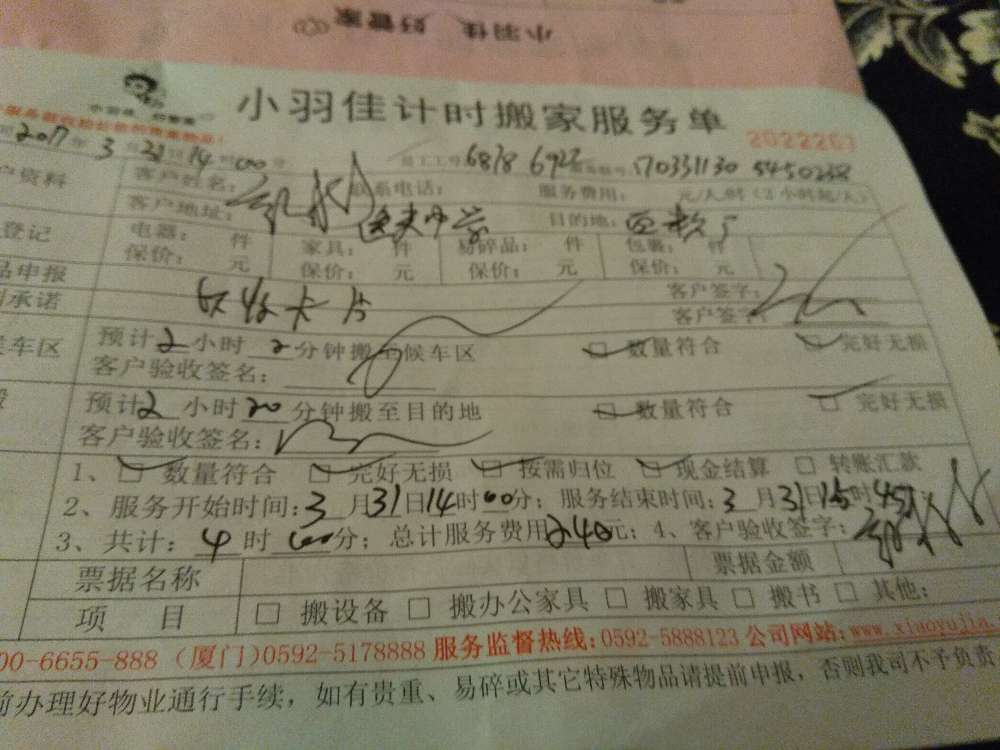 小羽佳 好管家
小羽佳计时搬家服务单
2022201
2017年3月31日14时00分 员工工号6878 6922
户资料 客户姓名: 联系电话: 服务费用: 元/人/时(2小时起/人)
客户地址: 中学 目的地:
登记 电器: 件 家具: 件 易碎品: 件 包裹: 件
保价: 元 保价: 元 保价: 元 保价: 元
品申报 客户签字:
承诺 卡片 客户签字:
候车区 预计2小时2分钟搬至候车区 数量符合 完好无损
客户验收签名:
预计2小时20分钟搬至目的地 数量符合 完好无损
客户验收签名:
1、数量符合 完好无损 按需归位 现金结算 转账汇款
2、服务开始时间:3月31日14时00分; 服务结束时间:3月31日15时45
3、共计:4时00分; 总计服务费用240元; 4、客户验收签字:
票据名称 票据金额
项目 搬设备 搬办公家具 搬家具 搬书 其他:
00-6655-888 (厦门)0592-5178888 服务监督热线:0592-5888123 公司网站:www.xiaoyujia.
前办理好物业通行手续,如有贵重、易碎或其它特殊物品请提前申报,否则我司不予负责